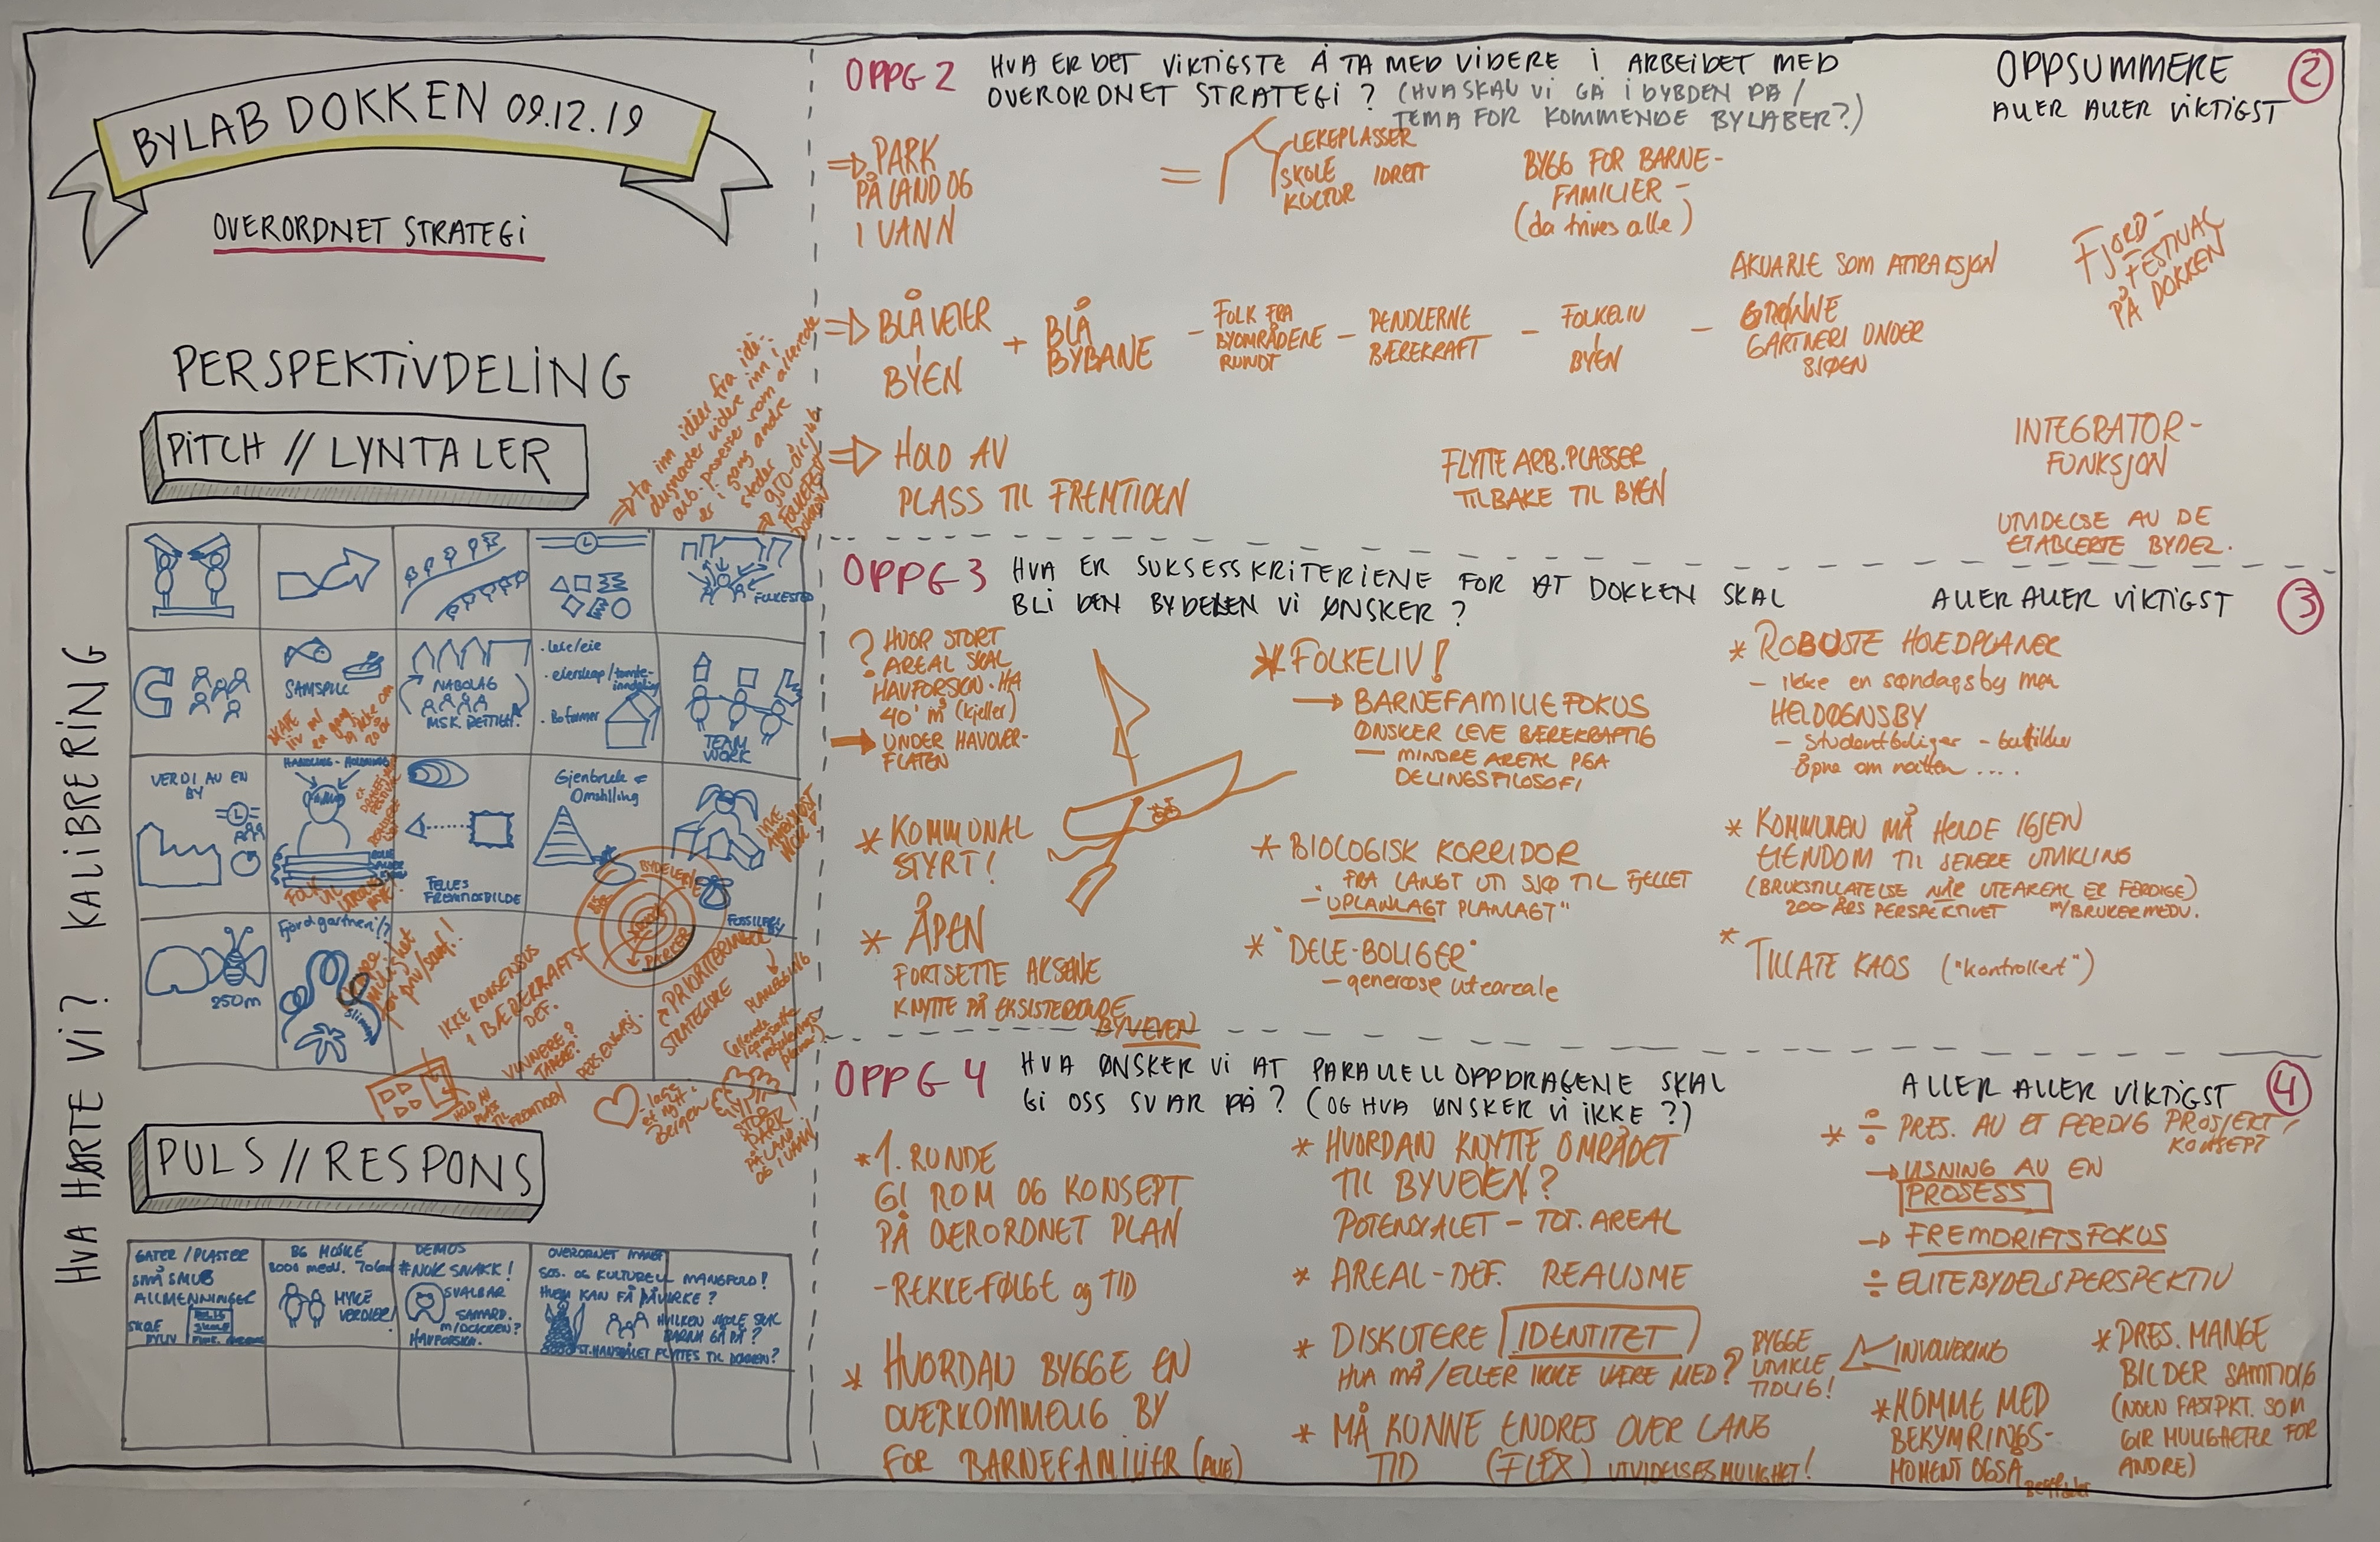 BYLAB DOKKEN 09.12.19
OVERORDNET STRATEGI
HVA HØRTE VI? KALIBRERING
PERSPEKTIVDELING
PITCH // LYNTALER
→ ta inn idéer fra idé-
dugnader videre inn i
arb.prosesser som allerede
er i gang andre
steder
→ 950-års jub.
FOLKEFEST
DOKKEN
FOLKESTED
SAMSPILL
SKAPE
liv m/
en gang
og ikke om
20 år
NABOLAG
MSK. BETTIGH.
· Leie/eie
· eierskap/tomte-
inndeling
· Boformer
TEAM
WORK
VERDI AV EN
BY
HANDLING - HOLDNING
FOLK
FELLES
FREMTIDSBILDE
Gjenbruk =
Omstilling
IKKE
BYDELER
PARKER
FOSSILFRI
250m
Fjordgartneri!?
mulighet
for priv/samf.!
IKKE KONSENSUS
I BÆREKRAFTS-
DEF.
VINNERE?
TAPERE?
PRIORITERINGER
STRATEGISKE
PLANLEGGING
HOLD AV
PLASS
TIL
FREMTIDEN
- lage
et nytt i
Bergen
STOR
PARK!
PÅ LAND
OG I VANN!
PULS // RESPONS
GATER / PLASSER
SMÅ SMUG
ALLMENNINGER
SKOLE
BYLIV
BG MOSKÉ
3000 medl. 70 land
MYKE
VERDIER!
DEMOS
#NOK SNAKK!
SVALBAR
SAMARB.
M/DOKKEN?
HAVFORSKN.
OVERORDNET MANGF
SOS. OG KULTURELL MANGFOLD!
HVEM KAN FÅ PÅVIRKE?
HVILKEN SKOLE SKAL
BARNA GÅ PÅ?
ST.HANSBÅLET FLYTTES TIL DOKKEN?
OPPG 2 HVA ER DET VIKTIGSTE Å TA MED VIDERE I ARBEIDET MED
OVERORDNET STRATEGI? (HVA SKAL VI GÅ I DYBDEN PÅ /
TEMA FOR KOMMENDE BYLABER?)
OPPSUMMERE 2
ALLER ALLER VIKTIGST
⇒ PARK
PÅ LAND OG
I VANN
= LEKEPLASSER
SKOLE IDRETT
KULTUR
BYGG FOR BARNE-
FAMILIER -
(da trives alle)
AKVARIE SOM ATTRAKSJON
FJORD-
FESTIVAL
PÅ DOKKEN
⇒ BLÅ VEIER
I
BYEN
+ BLÅ
BYBANE
- FOLK FRA
BYOMRÅDENE
RUNDT
- PENDLERNE
BÆREKRAFT
- FOLKELIV
I
BYEN
- GRØNNE
GARTNERI UNDER
SJØEN
⇒ HOLD AV
PLASS TIL FREMTIDEN
FLYTTE ARB.PLASSER
TILBAKE TIL BYEN
INTEGRATOR-
FUNKSJON
UTVIDELSE AV DE
ETABLERTE BYDEL.
OPPG 3 HVA ER SUKSESSKRITERIENE FOR AT DOKKEN SKAL
BLI DEN BYDELEN VI ØNSKER?
ALLER ALLER VIKTIGST 3
? HVOR STORT
AREAL SKAL
HAVFORSKN. HA
40' m² (kjeller)
→ UNDER HAVOVER-
FLATEN
* KOMMUNAL
STYRT!
* ÅPEN
FORTSETTE AKSENE
KNYTTE PÅ EKSISTERENDE
BYVEVEN
* FOLKELIV!
→ BARNEFAMILIEFOKUS
ØNSKER LEVE BÆREKRAFTIG
- MINDRE AREAL PGA
DELINGSFILOSOFI
* BIOLOGISK KORRIDOR
FRA LANGT UTI SJØ TIL FJELLET
- "UPLANLAGT PLANLAGT"
* "DELE-BOLIGER"
- generøse utearealer
* ROBUSTE HOVEDPLANER
- ikke en søndagsby men
HELDØGNSBY
- studentboliger - butikker
åpne om natten ....
* KOMMUNEN MÅ HOLDE IGJEN
EIENDOM TIL SENERE UTVIKLING
(BRUKSTILLATELSE NÅR UTEAREAL ER FERDIGE)
200-ÅRS PERSPEKTIVET M/BRUKERMEDV.
* TILLATE KAOS ("kontrollert")
OPPG 4 HVA ØNSKER VI AT PARALLELLOPPDRAGENE SKAL
GI OSS SVAR PÅ? (OG HVA ØNSKER VI IKKE?)
ALLER ALLER VIKTIGST 4
* 1. RUNDE
GI ROM OG KONSEPT
PÅ OVERORDNET PLAN
- REKKEFØLGE og TID
* HVORDAN BYGGE EN
OVERKOMMELIG BY
FOR BARNEFAMILIER (ALLE)
* HVORDAN KNYTTE OMRÅDET
TIL BYVEVEN?
POTENSIALET - TOT. AREAL
* AREAL-DEF. REALISME
* DISKUTERE IDENTITET
HVA MÅ/ELLER IKKE VÆRE MED?
BYGGE
UTVIKLE
TIDLIG!
INVOLVERING
* MÅ KUNNE ENDRES OVER LANG
TID (FLEX) UTVIDELSESMULIGHET!
* ÷ PRES. AV ET FERDIG PROSJEKT/
KONSEPT
→ LØSNING AV EN
PROSESS
→ FREMDRIFTSFOKUS
÷ ELITEBYDELSPERSPEKTIV
* KOMME MED
BEKYMRINGS-
MOMENT OGSÅ
* PRES. MANGE
BILDER SAMTIDIG
(NOEN FASTPKT. SOM
GIR MULIGHETER FOR
ANDRE)